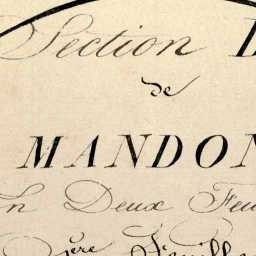 Section D
de
MANDON
En Deux Feu
1ère Feuille